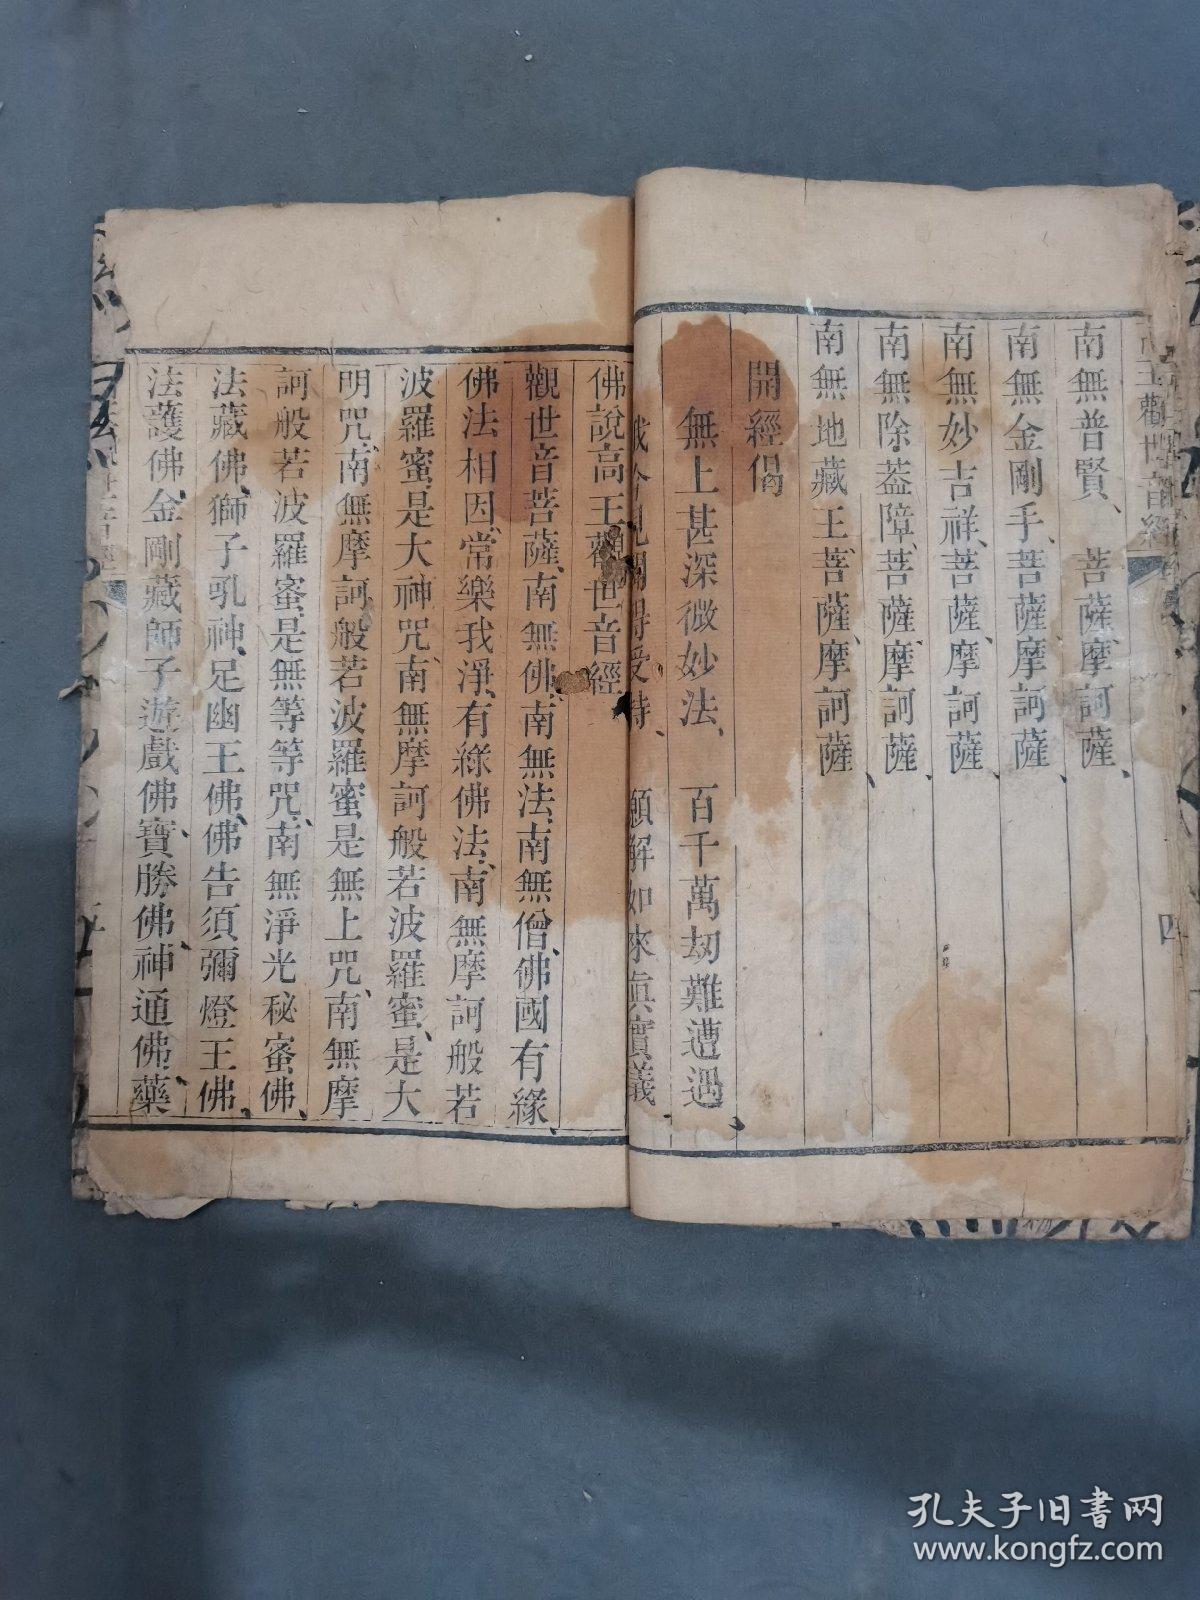 王觀世音經
四
南無普賢、菩薩、摩訶薩、
南無金剛手、菩薩、摩訶薩、
南無妙吉祥、菩薩、摩訶薩、
南無除葢障、菩薩、摩訶薩、
南無地藏王、菩薩、摩訶薩、
開經偈
無上甚深微妙法、百千萬刼難遭遇、
我今見聞得受持、願解如來眞實義、
佛說高王觀世音經
觀世音菩薩、南無佛、南無法、南無僧、佛國有緣、
佛法相因、常樂我淨、有緣佛法、南無摩訶般若
波羅蜜、是大神咒、南無摩訶般若波羅蜜、是大
明咒、南無摩訶般若波羅蜜、是無上咒、南無摩
訶般若波羅蜜、是無等等咒、南無淨光秘蜜佛、
法藏佛、獅子吼神、足幽王佛、佛告須彌燈王佛、
法護佛、金剛藏師子遊戲佛、寶勝佛、神通佛、藥
孔夫子旧书网
www.kongfz.com